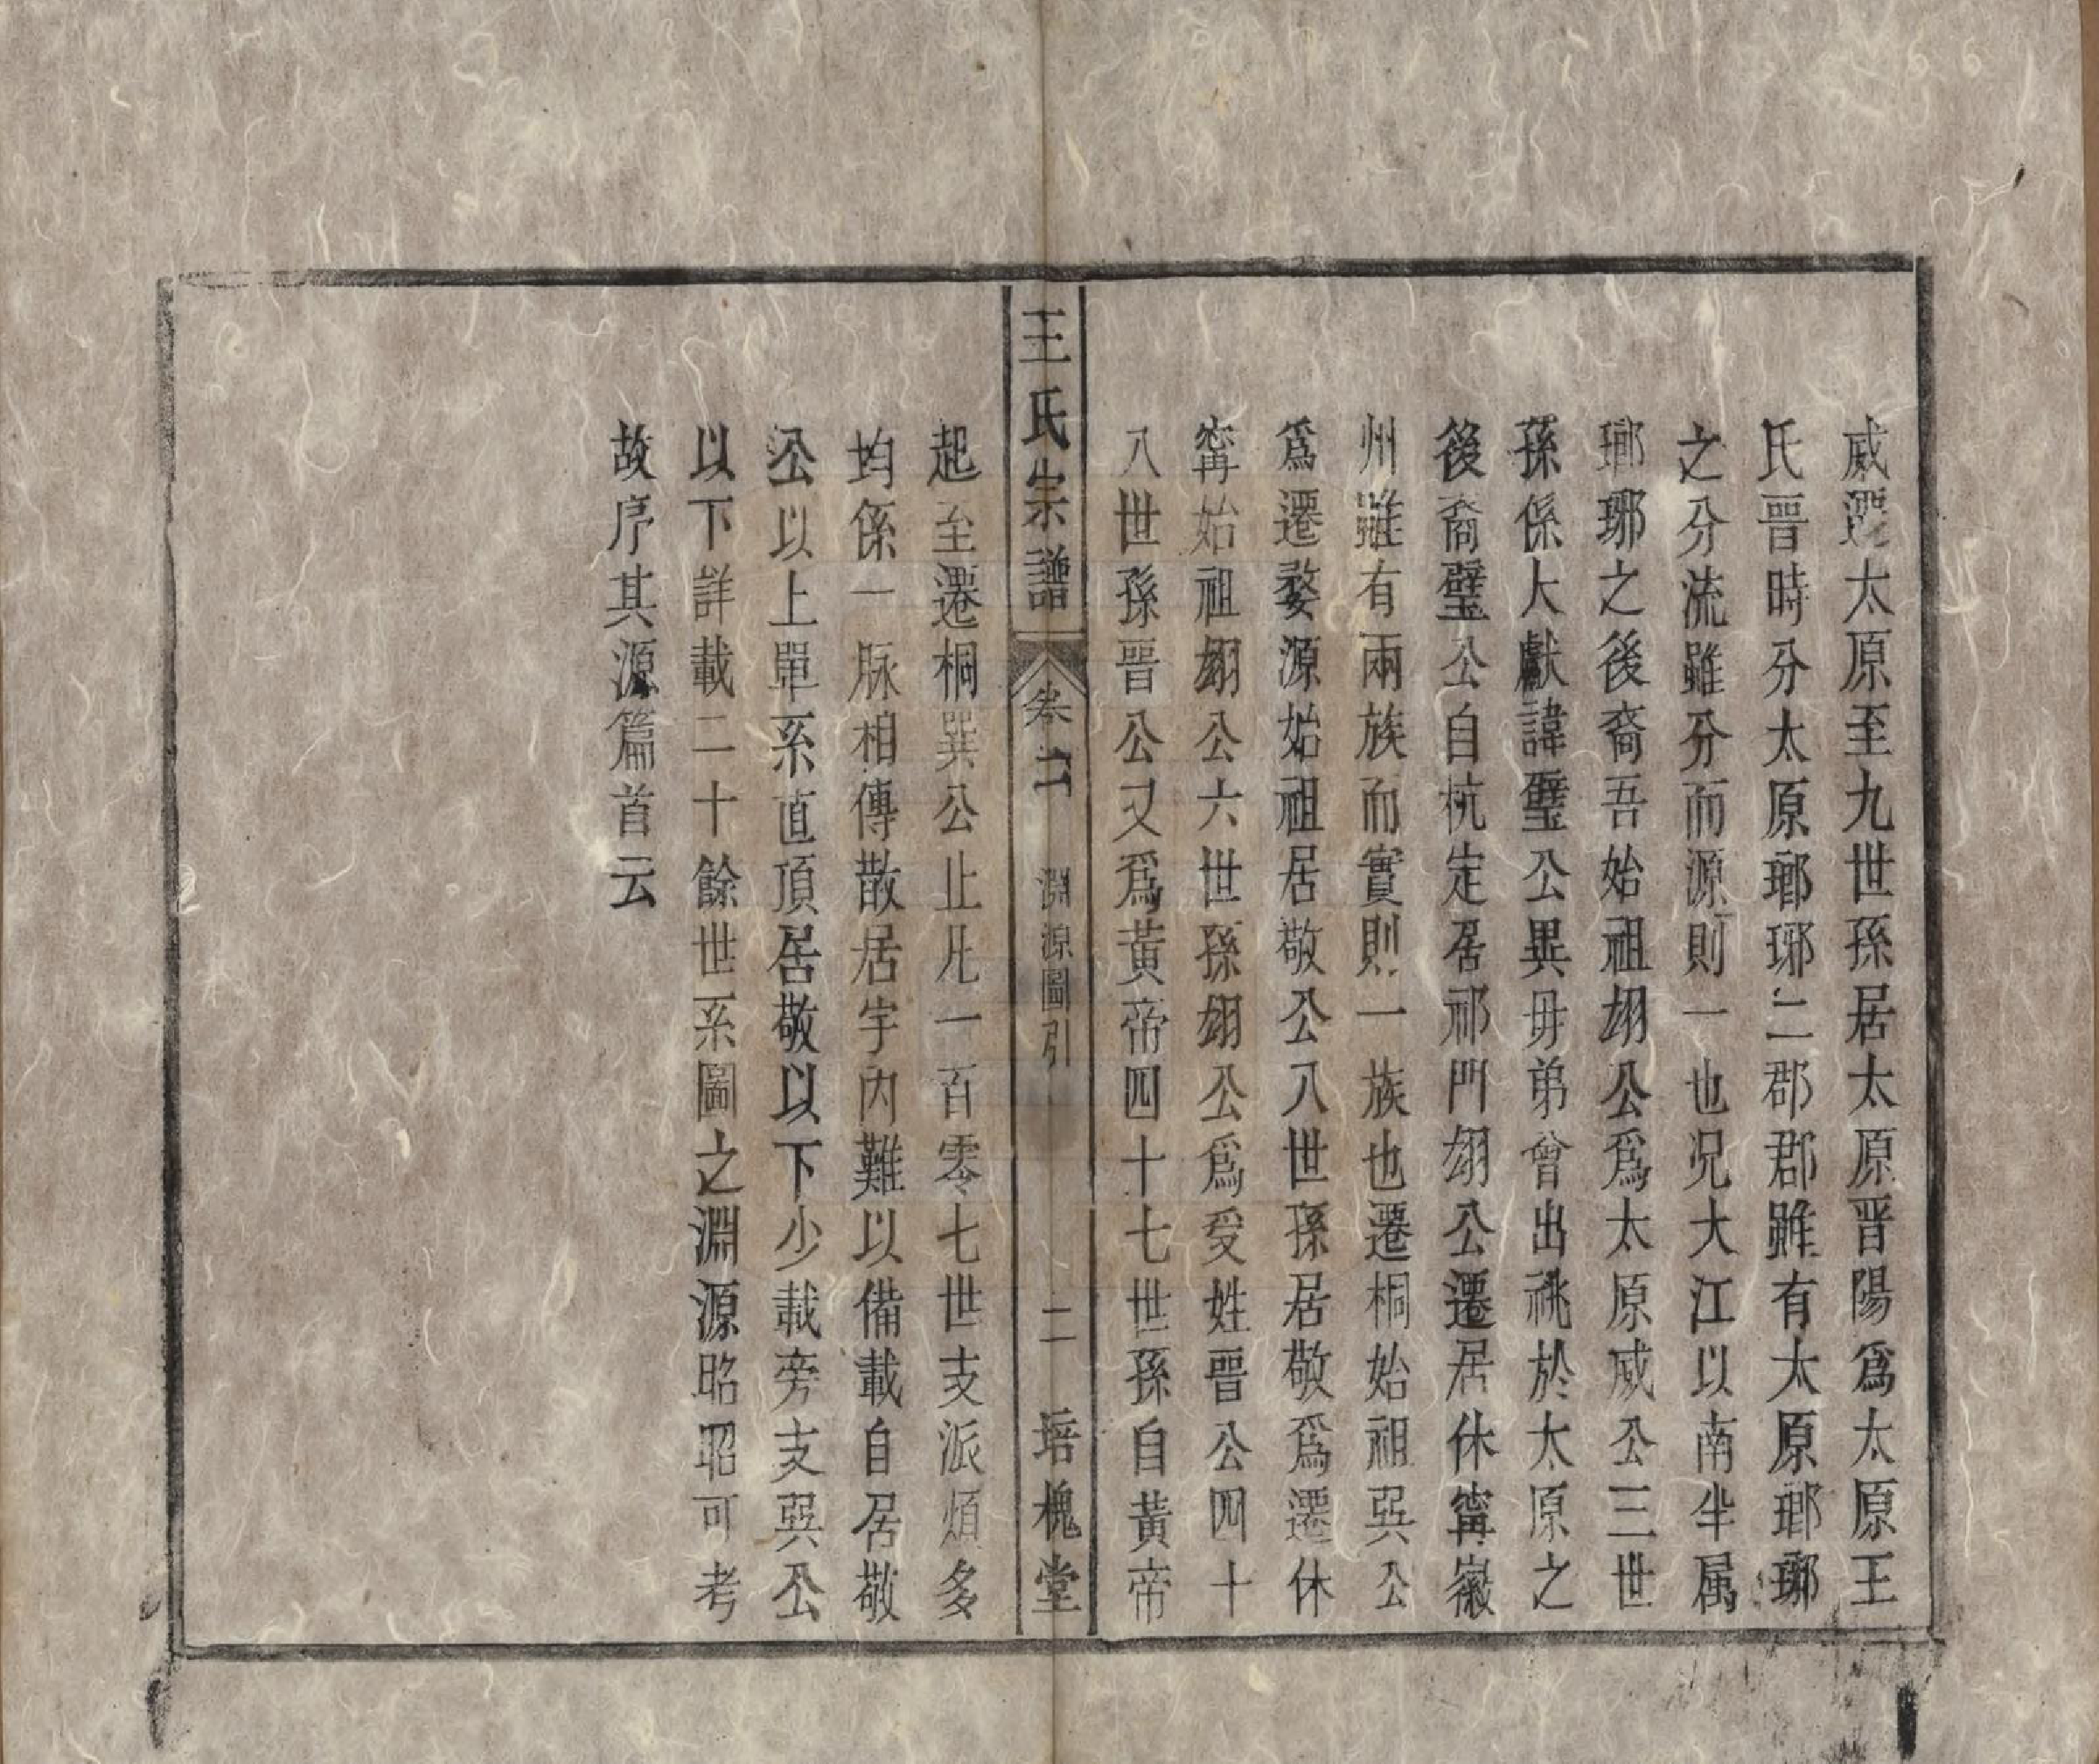 威遷太原至九世孫居太原晋陽爲太原王
氏晉時分太原瑯琊二郡郡雖有太原瑯琊
之分流雖分而源則一也况大江以南半属
瑯琊之後裔吾始祖翃公爲太原威公三世
孫係大獻諱璧公異毋弟曾出祧於太原之
後裔璧公自杭定居祁門翃公遷居休寗徽
州雖有兩族而實則一族也遷桐始祖巽公
爲遷婺源始祖居敬公八世孫居敬爲遷休
寗始祖翃公六世孫翃公爲受姓晉公四十
八世孫晉公又爲黃帝四十七世孫自黃帝
王氏宗譜 卷二 淵源圖引 二 培槐堂
起至遷桐巽公止凡一百零七世支派煩多
均係一脉相傳散居宇內難以備載自居敬
公以上單系直頂居敬以下少載旁支巽公
以下詳載二十餘世系圖之淵源昭昭可考
故序其源篇首云